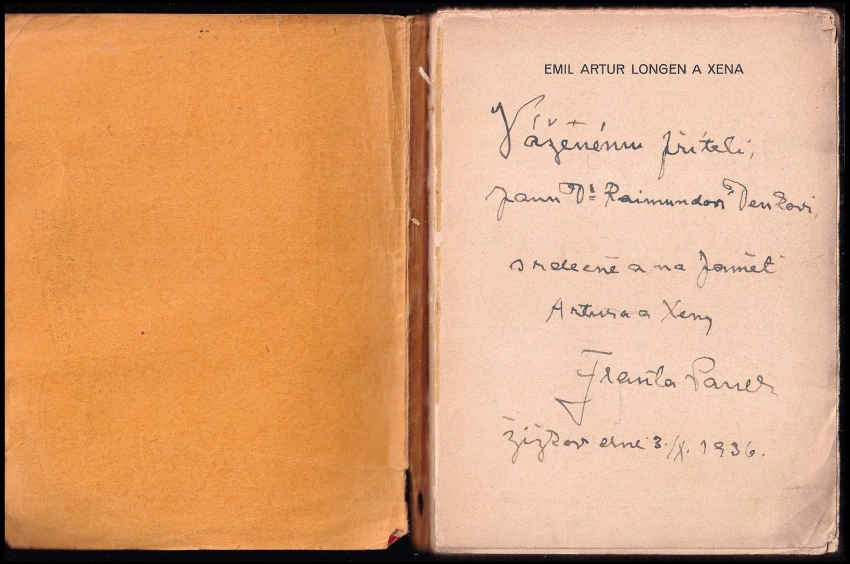 EMIL ARTUR LONGEN A XENA
Váženému příteli,
panu Dr Raimundovi Denkovi,
srdečně a na paměť
Artura a Xeny
Franta Sauer
Žižkov dne 3./X. 1936.